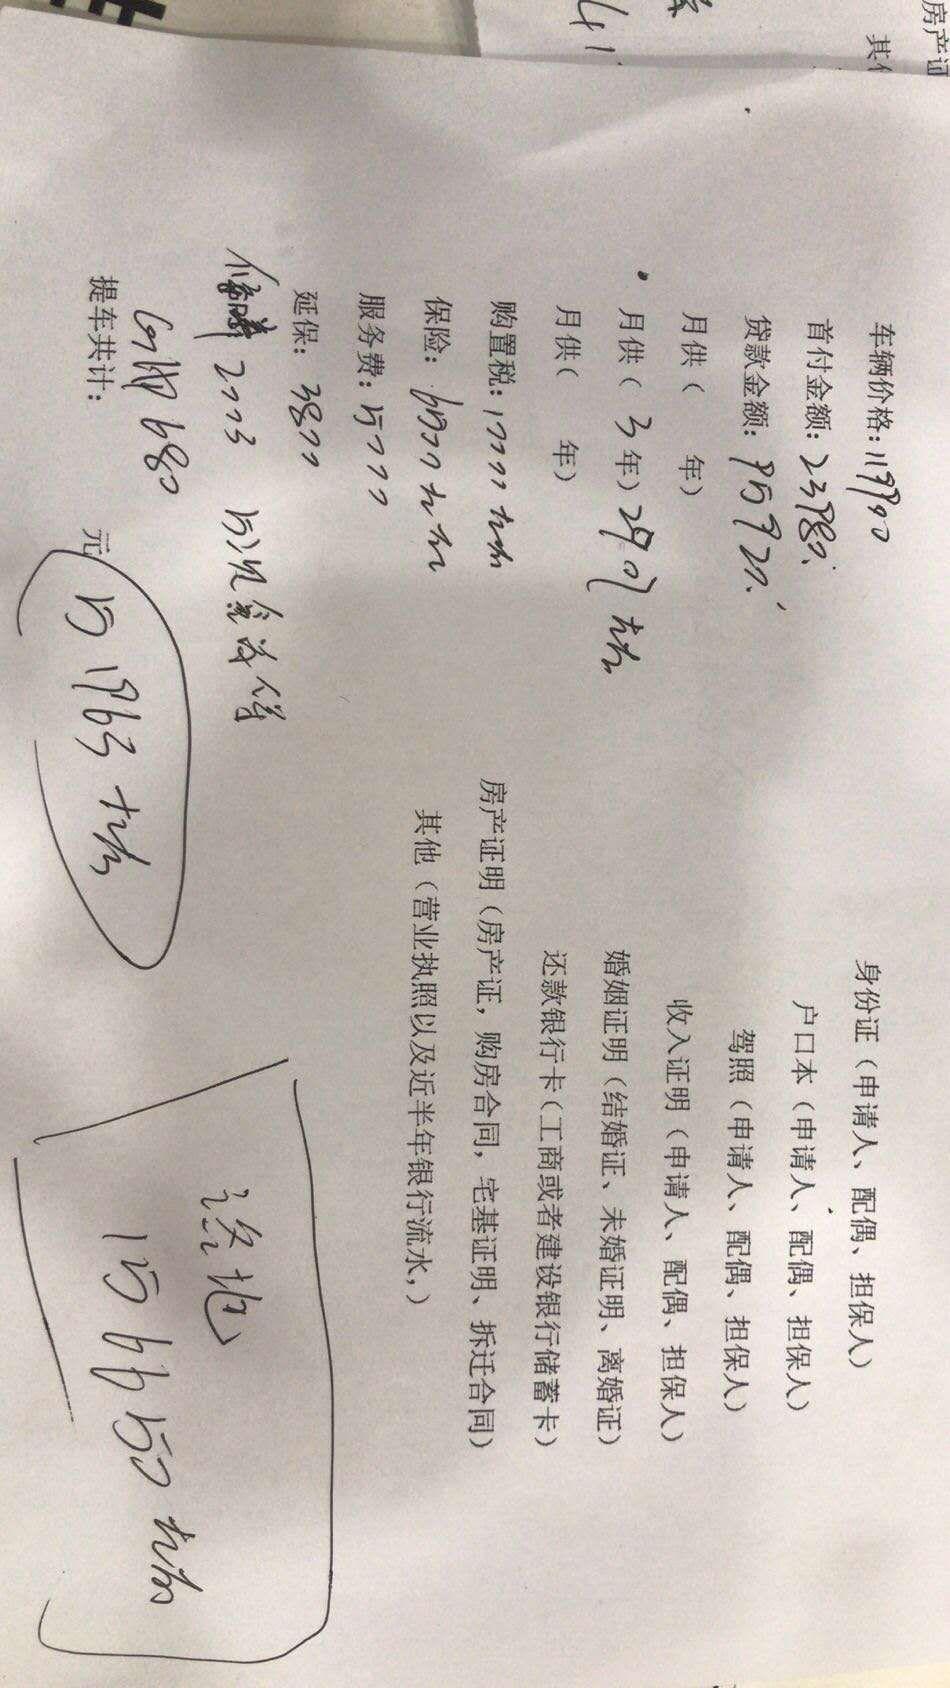 房产证
其他
41
车辆价格：119900
首付金额：23980.
贷款金额：95920.
月供（ 年）
月供（3年）2907 左右
月供（ 年）
购置税：10000 左右
保险：6000 左右
服务费：5000
延保：3800
2000
680
提车共计： 元
51963 左右
身份证（申请人、配偶、担保人）
户口本（申请人、配偶、担保人）
驾照（申请人、配偶、担保人）
收入证明（申请人、配偶、担保人）
婚姻证明（结婚证、未婚证明、离婚证）
还款银行卡（工商或者建设银行储蓄卡）
房产证明（房产证，购房合同，宅基证明、拆迁合同）
其他（营业执照以及近半年银行流水，）
落地
156650 左右